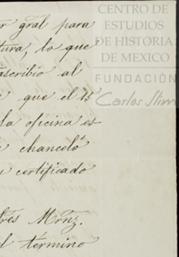 r gral para
tura, lo que
ascribio al
que el Sr
la oficina es
chanceló
certificado
rés Mrnz.
el término
CENTRO DE
ESTUDIOS
DE HISTORIA
DE MEXICO
FUNDACIÓN
Carlos Slim